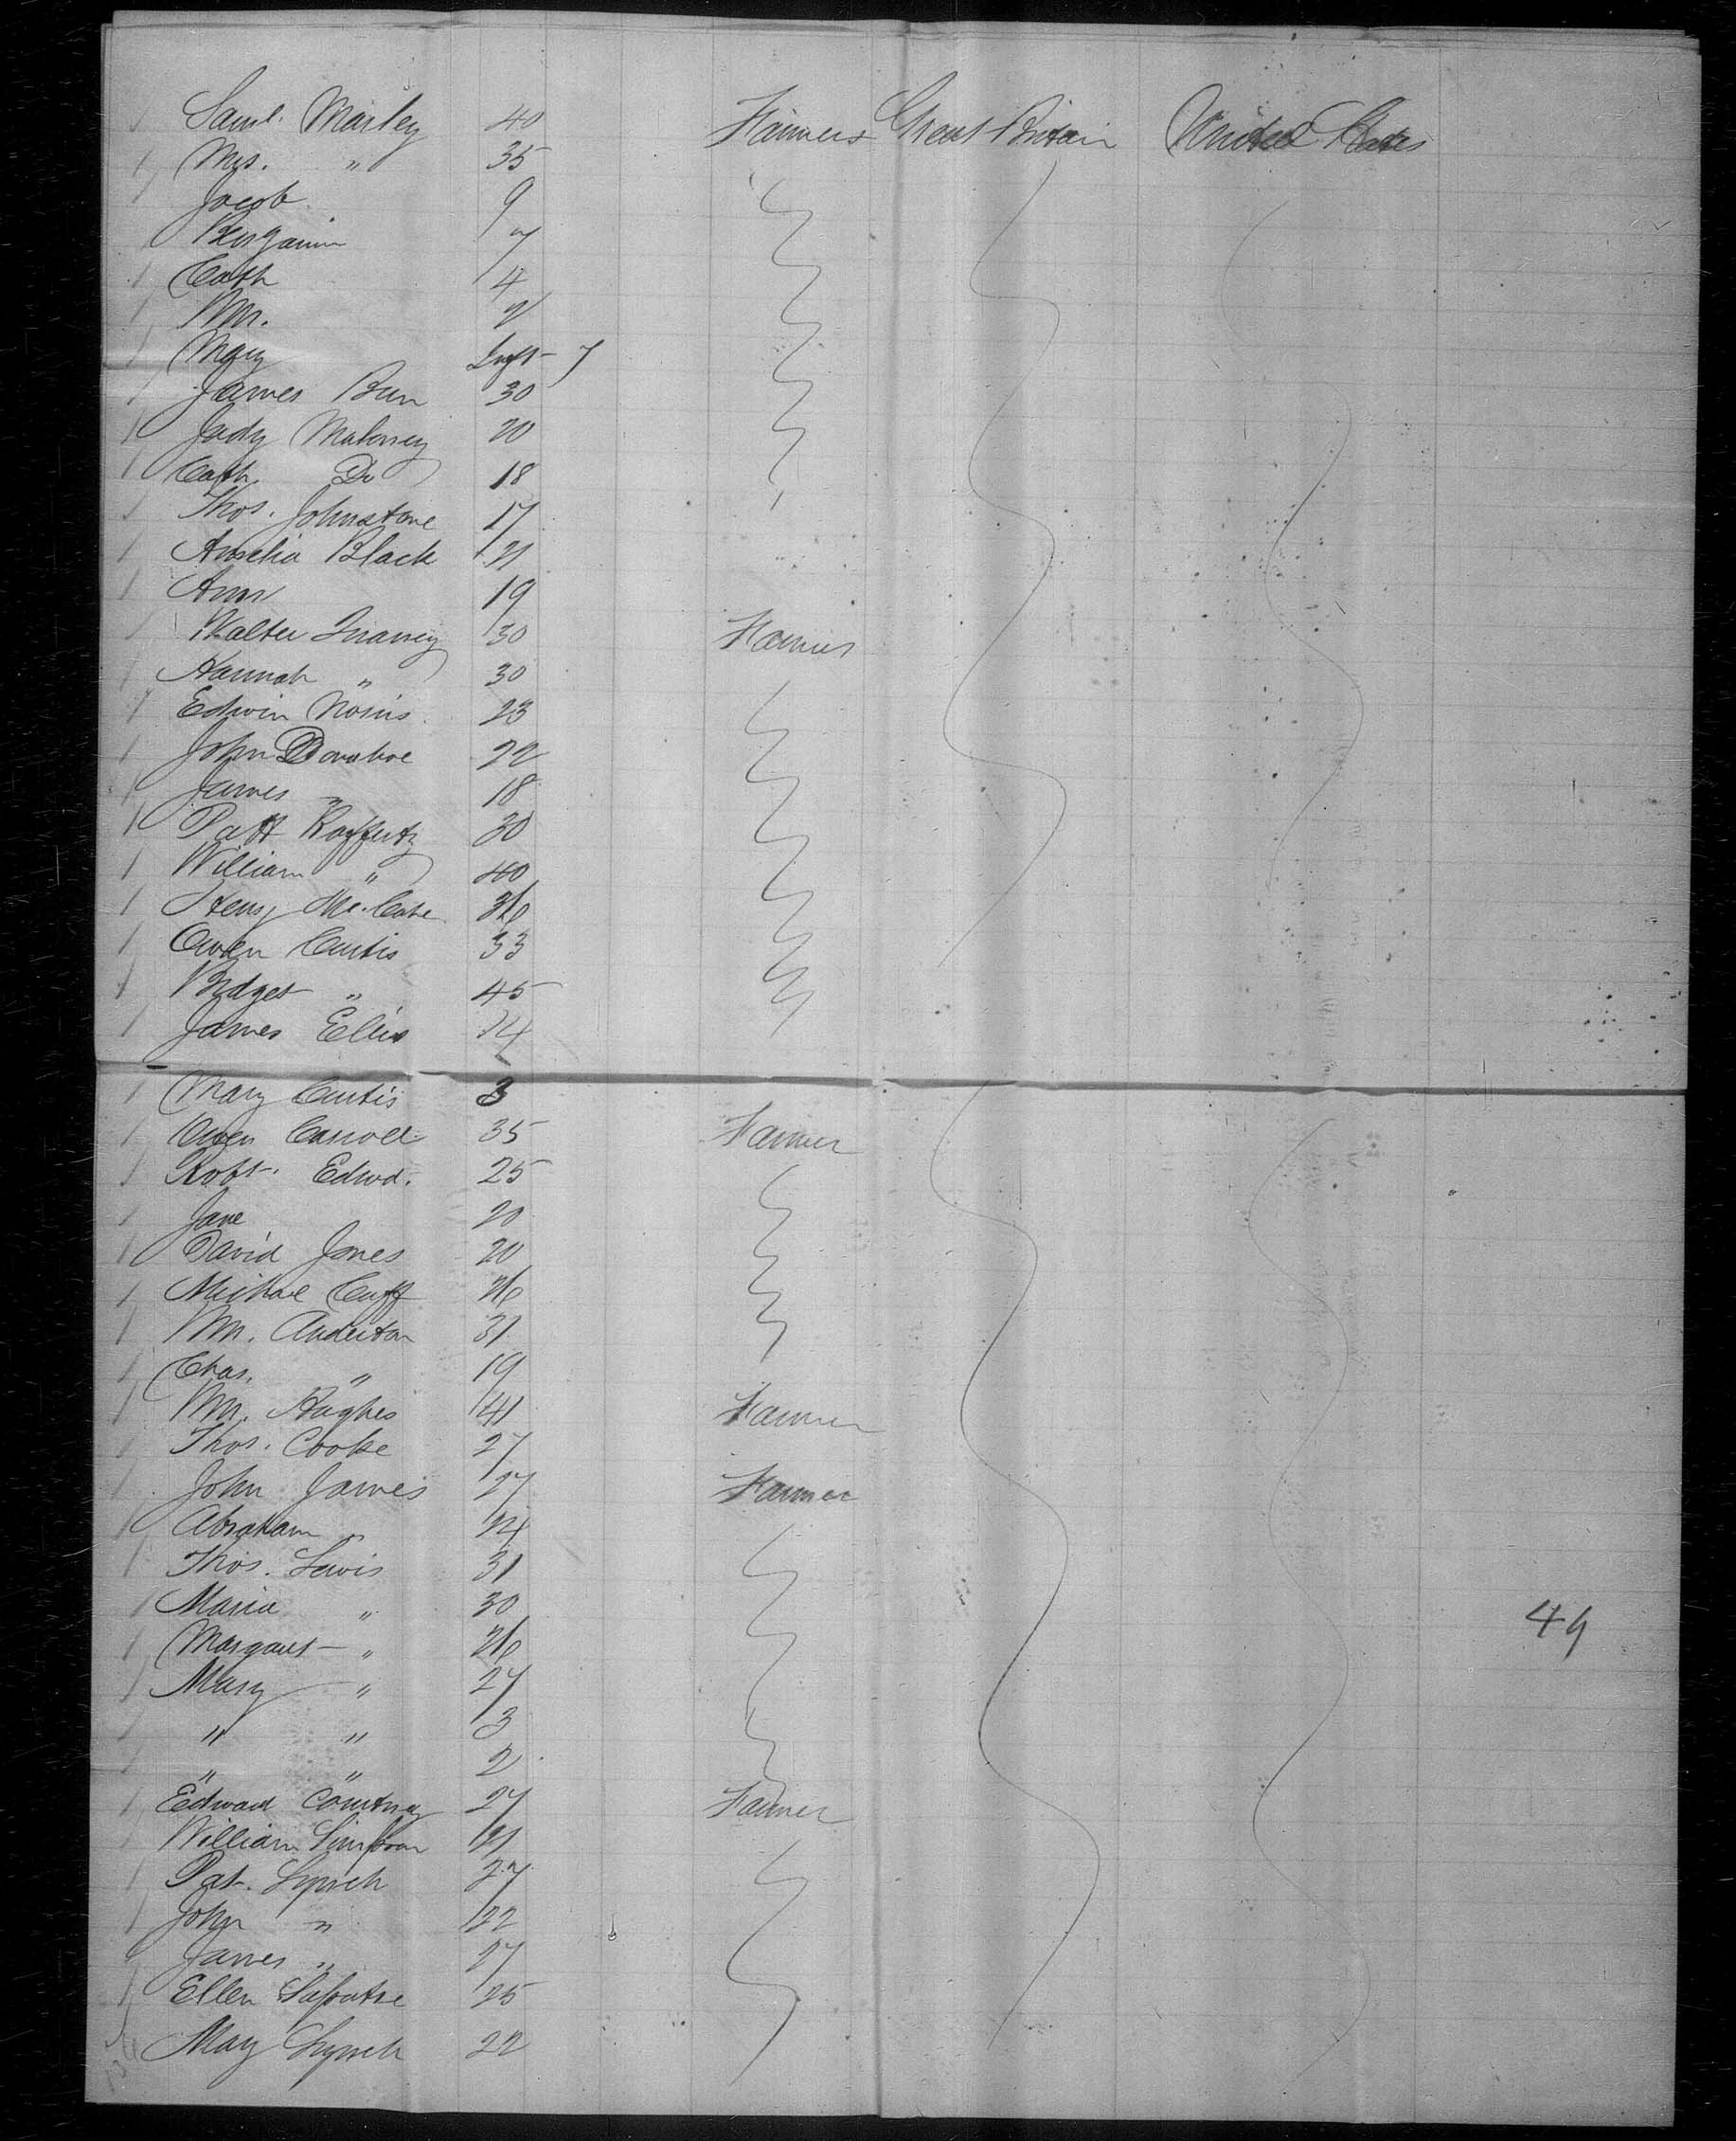 Saml. Marley 40 Farmers Great Britain United States
Mrs. " 35
Jacob 9
Benjamin 7
Cath 4
Wm. 2
Mary Inft 7
James Burn 30
Judy Maloney 20
Cath. Do 18
Thos. Johnstone 17
Amelia Black 21
Ann 19
Walter 30 Farmer
Hannah " 30
Edwin Norris 23
John Donohoe 22
James " 18
Patt Rafferty 30
William " 40
Henry McCabe 26
Owen Curtis 33
Bridget " 45
James Ellis 14
Mary Curtis 3
Owen Carroll 35 Farmer
Robt. Edwd. 25
Jane 20
David Jones 20
Michael Cuff 26
Wm. Anderton 31
Chas. " 19
Wm. Hughes 41 Farmer
Thos. Cooke 27
John James 27 Farmer
Abraham " 24
Thos. Lewis 31
Maria " 30
49
Margaret " 26
Mary " 27
" " 3
" " 2
Edward Courtney 27 Farmer
William Simpson 21
Pat. Lynch 27
John " 22
James " 27
Ellen 25
May Lynch 22